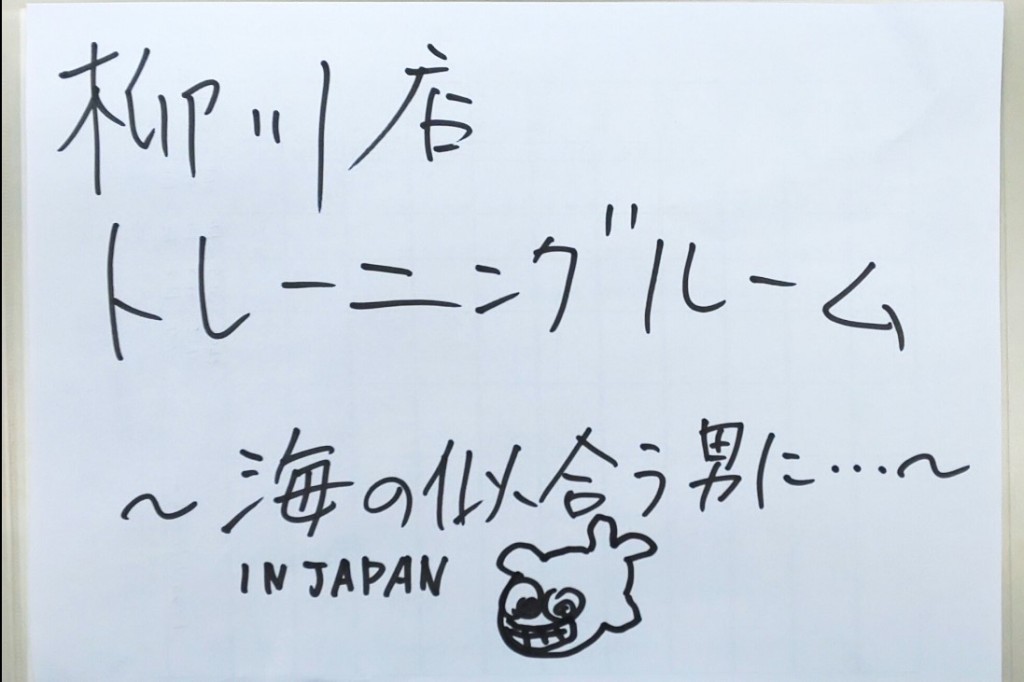 柳川店
トレーニングルーム
～海の似合う男に…～
IN JAPAN